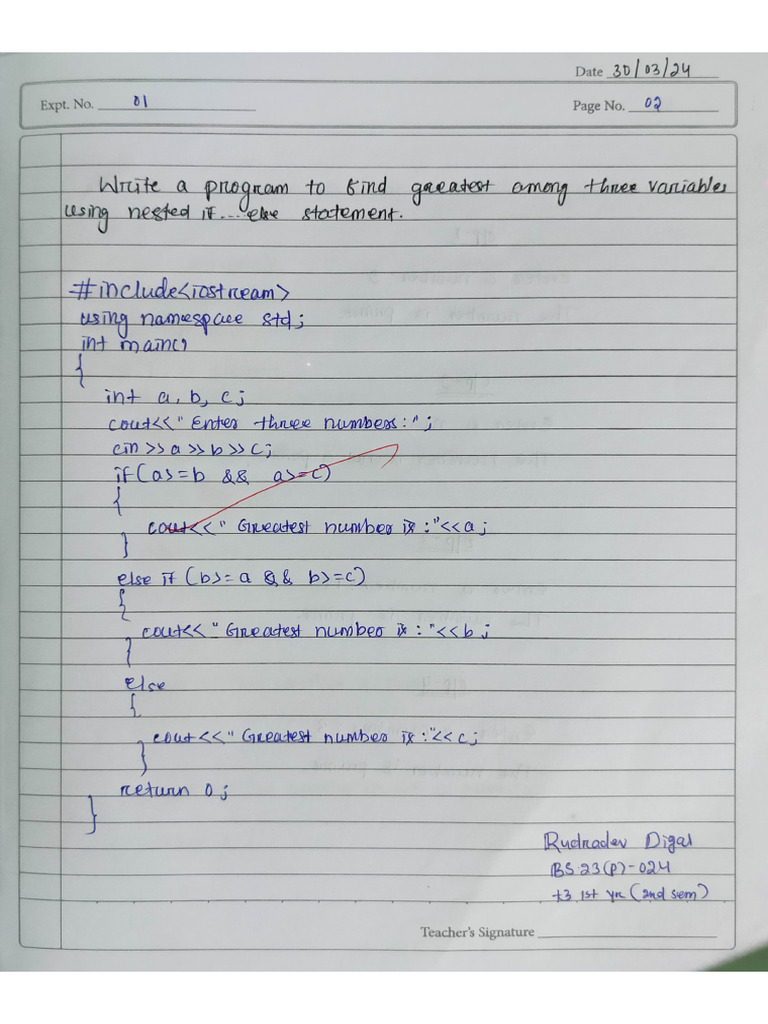 Date 30/03/24
Expt. No. 01
Page No. 02
Write a program to find greatest among three variables
using nested if...else statement.
#include<iostream>
using namespace std;
int main()
{
int a, b, c;
cout<<"Enter three numbers:";
cin>>a>>b>>c;
if(a>=b && a>=c)
{
cout<<"Greatest number is:"<<a;
}
else if (b>=a && b>=c)
{
cout<<"Greatest number is:"<<b;
}
else
{
cout<<"Greatest number is:"<<c;
}
return 0;
}
Rudradev Digal
BS23(P)-024
+3 1st yr (2nd sem)
Teacher's Signature